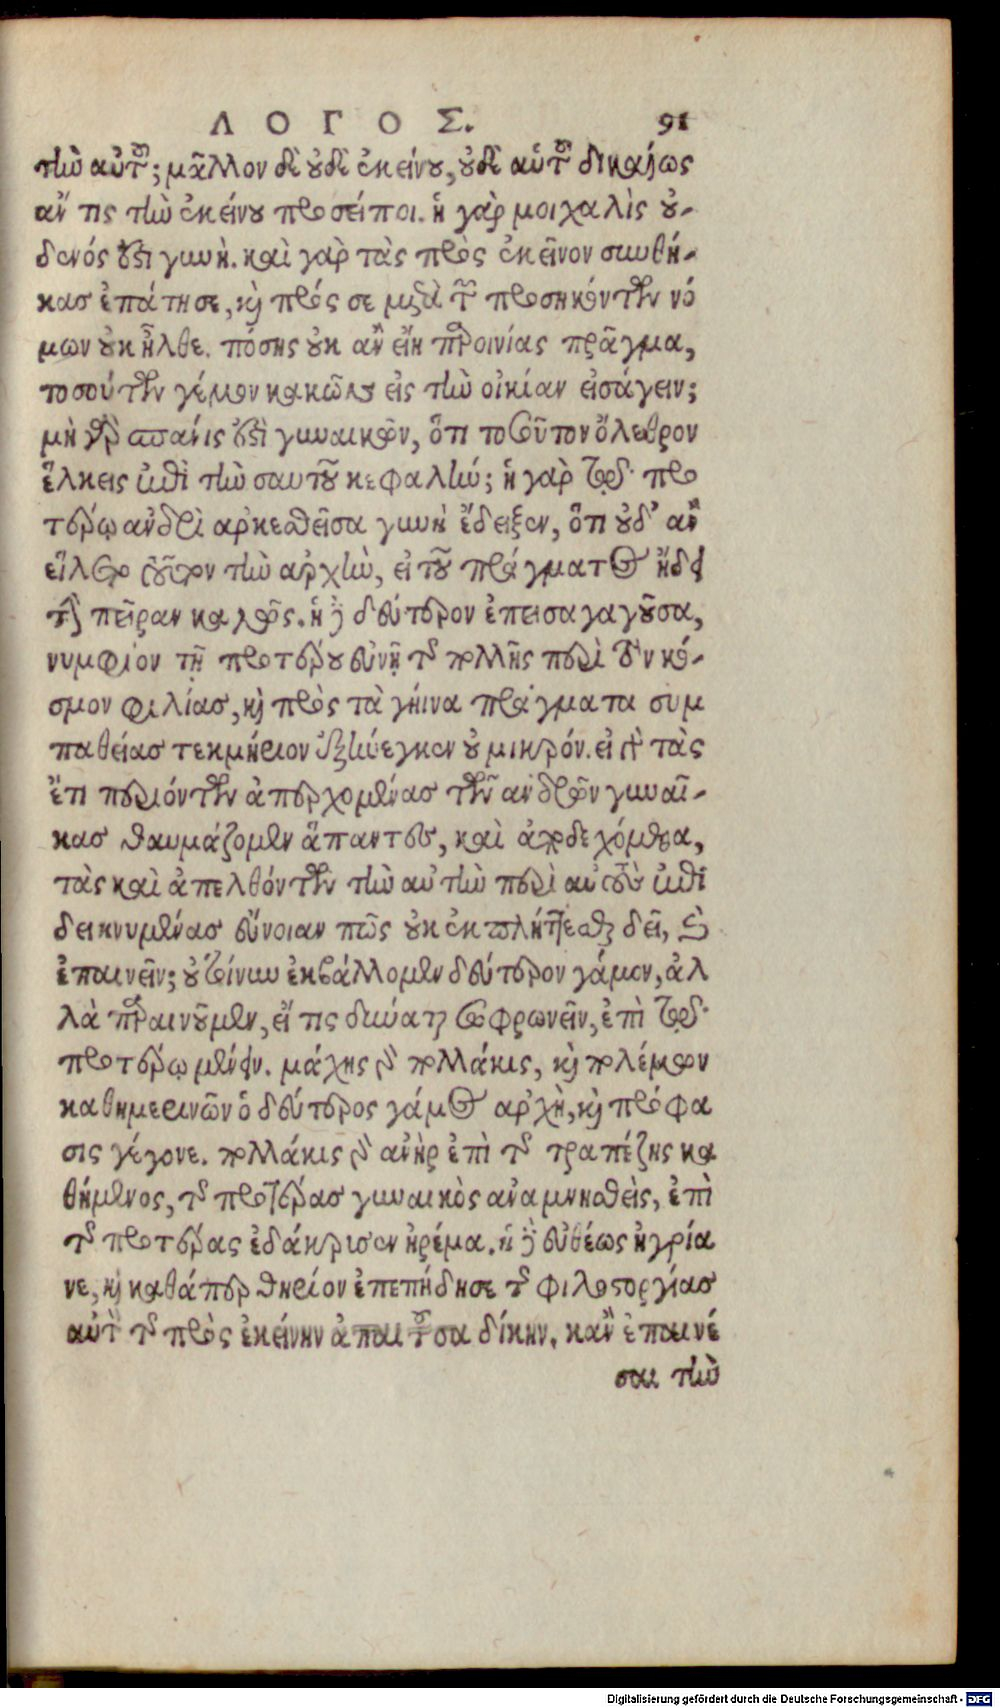 ΛΟΓΟΣ. 91
τὴν αὐτοῦ; μᾶλλον δὲ οὐδὲ ἐκείνου, οὐδὲ αὐτοῦ δικαίως
ἄν τις τὴν ἐκείνου προσείποι. ἡ γὰρ μοιχαλὶς οὐ-
δενός ἐστι γυνή. καὶ γὰρ τὰς πρὸς ἐκεῖνον συνθή-
κας ἐπάτησε, καὶ πρός σε μετὰ τῶν προσηκόντων νό
μων οὐκ ἦλθε. πόσης οὐκ ἂν εἴη παροινίας πρᾶγμα,
τοσούτων γέμον κακῶν εἰς τὴν οἰκίαν εἰσάγειν;
μὴ γὰρ σπάνις ἐστὶ γυναικῶν, ὅτι τοσοῦτον ὄλεθρον
ἕλκεις ἐπὶ τὴν σαυτοῦ κεφαλήν; ἡ γὰρ τῷ προ
τέρῳ ἀνδρὶ ἀρκεσθεῖσα γυνὴ ἔδειξεν, ὅτι οὐδ' ἂν
εἵλετο τοῦτον τὴν ἀρχὴν, εἰ τοῦ πράγματος ᾔδει
τὴν πεῖραν καλῶς. ἡ δὲ δεύτερον ἐπεισαγαγοῦσα,
νυμφίον τῇ προτέρου εὐνῇ τῆς πολλῆς περὶ τὸν κό-
σμον φιλίας, καὶ πρὸς τὰ γήινα πράγματα συμ
παθείας τεκμήριον ἐξήνεγκεν οὐ μικρόν. εἰ δὲ τὰς
ἔτι περιόντων ἀπερχομένας τῶν ἀνδρῶν γυναῖ-
κας θαυμάζομεν ἅπαντες, καὶ ἀποδεχόμεθα,
τὰς καὶ ἀπελθόντων τὴν αὐτὴν περὶ αὐτοὺς ἐπι
δεικνυμένας εὔνοιαν πῶς οὐκ ἐκπλήττεσθαι δεῖ, καὶ
ἐπαινεῖν; οὐ τοίνυν ἐκβάλλομεν δεύτερον γάμον, ἀλ
λὰ παραινοῦμεν, εἴ τις δύναται σωφρωνεῖν, ἐπὶ τῷ
προτέρῳ μένειν. μάχης δὲ πολλάκις, καὶ πολέμων
καθημερινῶν ὁ δεύτερος γάμος ἀρχὴ, καὶ πρόφα
σις γέγονε. πολλάκις δὲ ἀνὴρ ἐπὶ τῆς τραπέζης κα
θήμενος, τῆς προτέρας γυναικὸς ἀναμνησθεὶς, ἐπὶ
τῆς προτέρας ἐδάκρισεν ἠρέμα. ἡ δὲ εὐθέως ἠγρία
νε, καὶ καθάπερ θηρίον ἐπεπήδησε τῆς φιλοστοργίας
αὐτὸν τῆς πρὸς ἐκείνην ἀπαιτοῦσα δίκην. κἂν ἐπαινέ
σαι τὴν
Digitalisierung gefördert durch die Deutsche Forschungsgemeinschaft - DFG